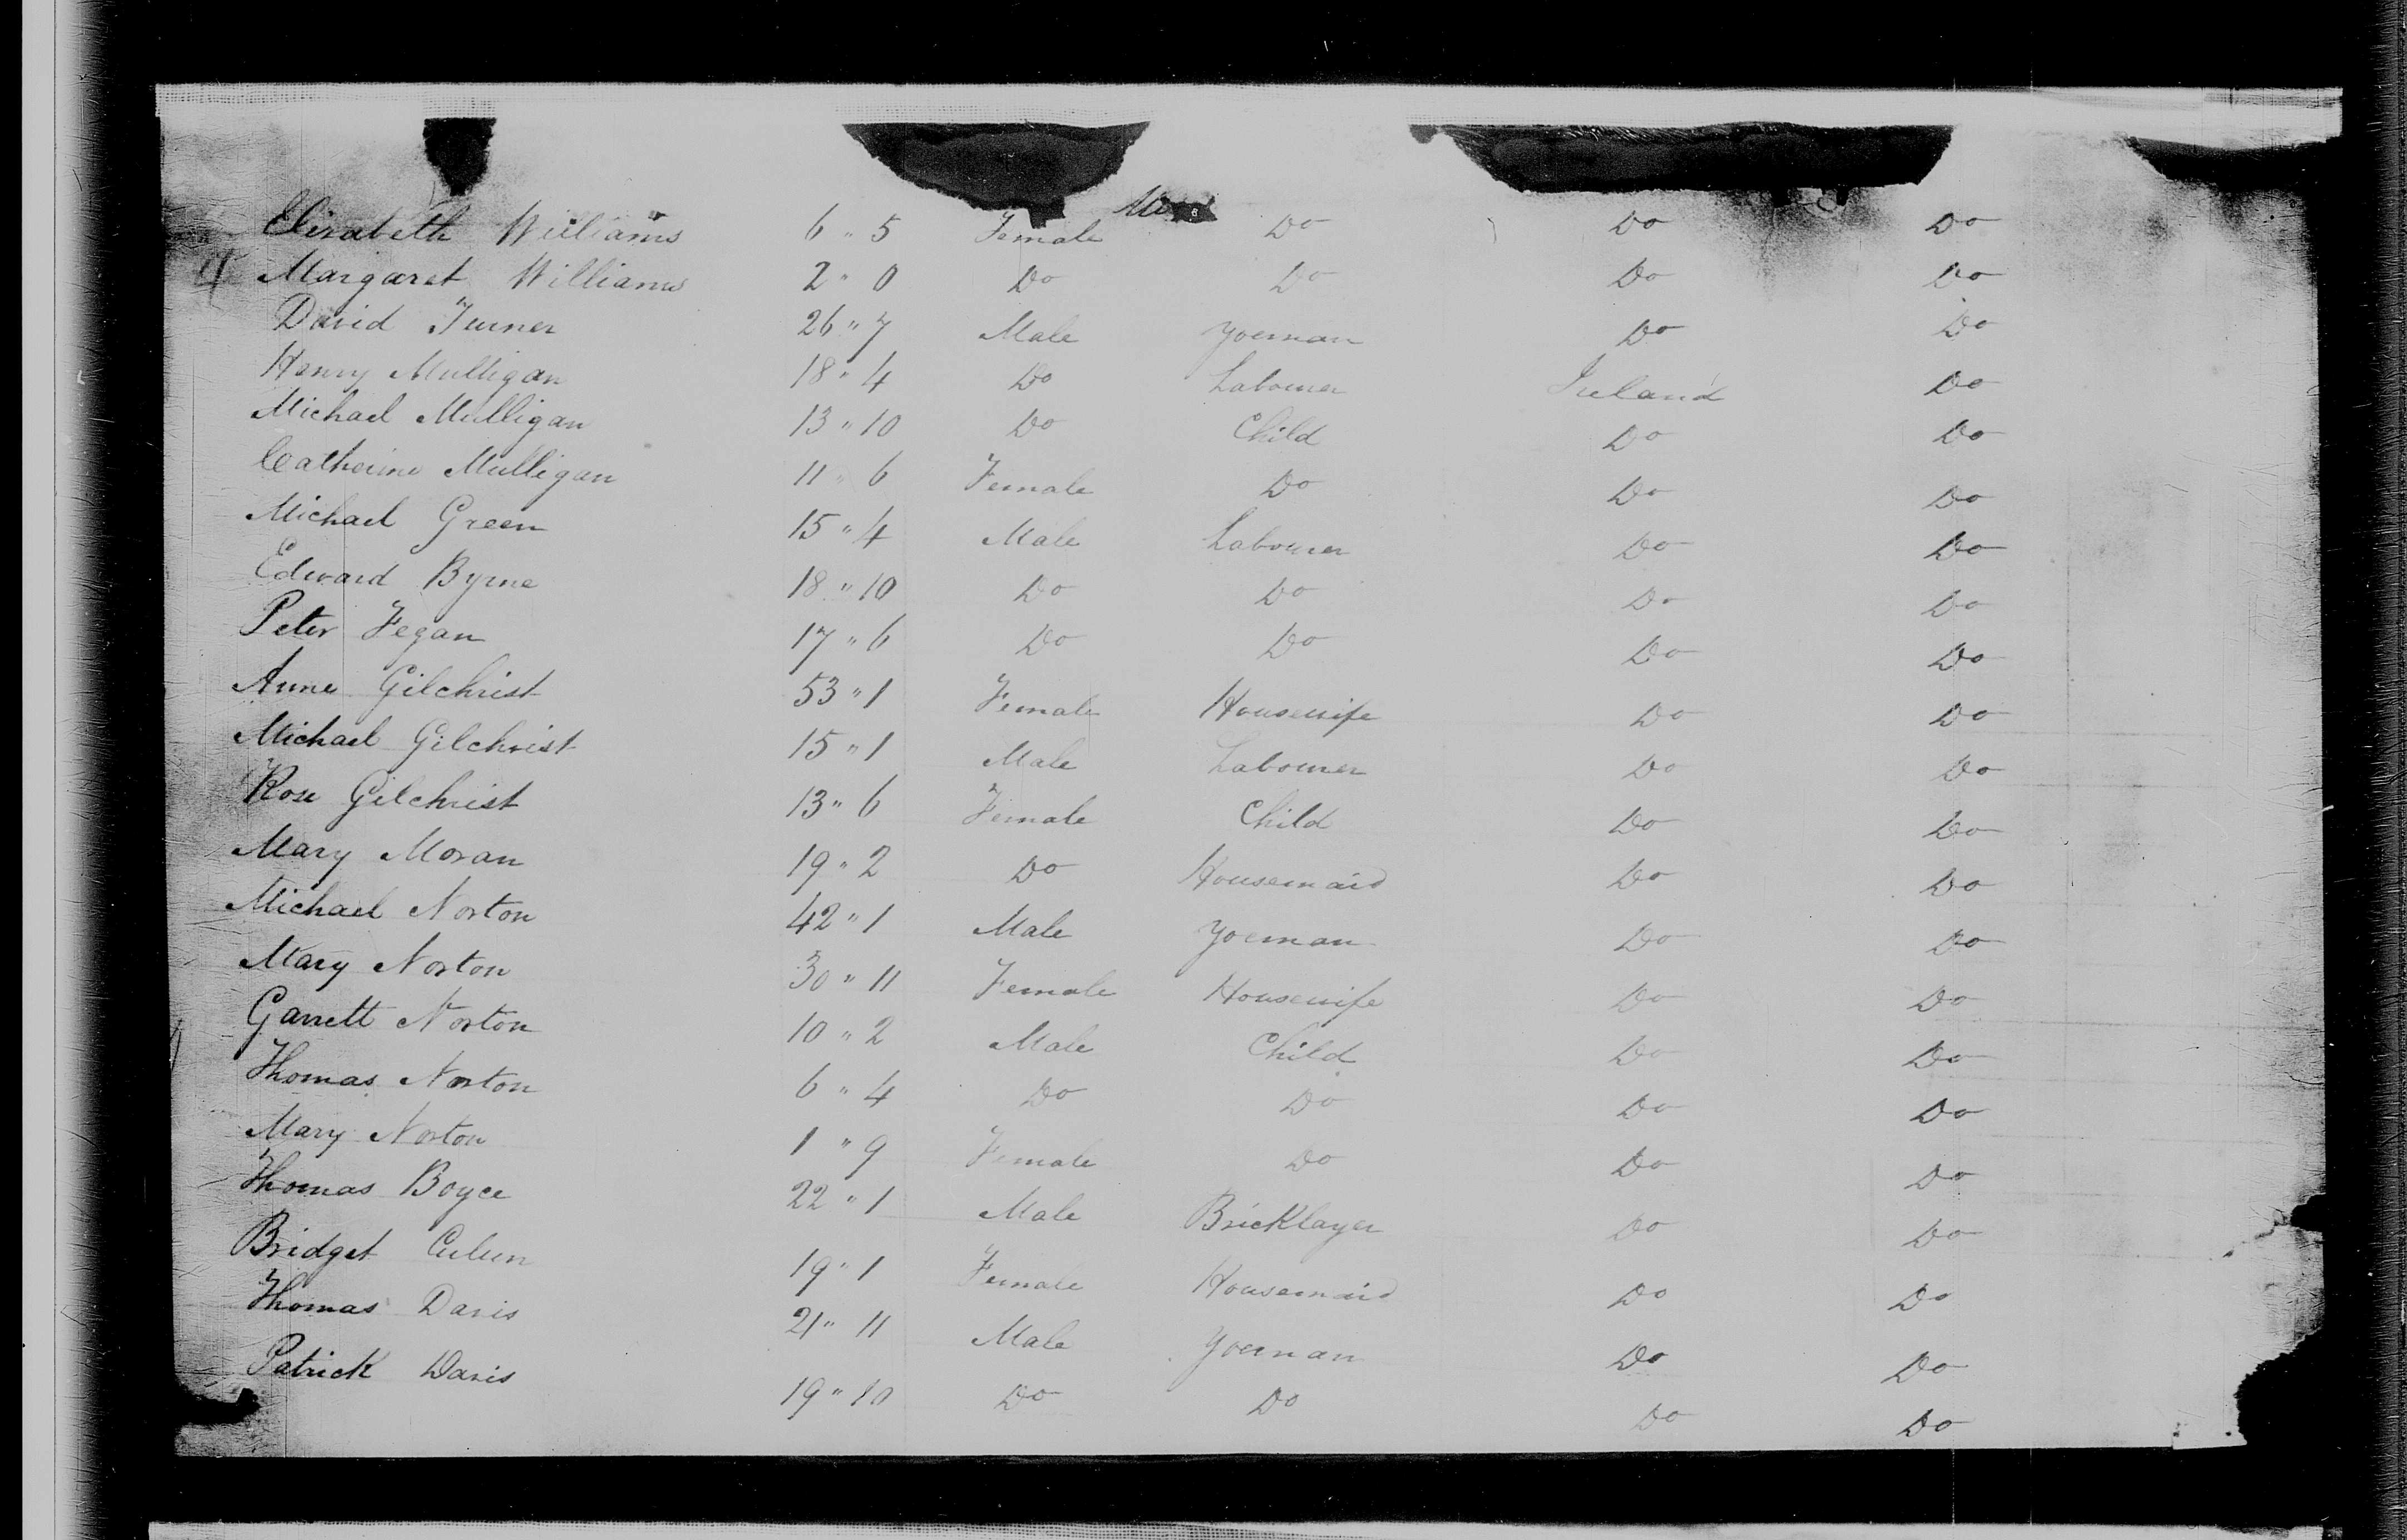 Elizabeth Williams 6 " 5 Female Do Do Do
Margaret Williams 2 " 0 Do Do Do Do
David Turner 26 " 7 Male Yoeman Do Do
Henry Mulligan 18 " 4 Do Labourer Ireland Do
Michael Mulligan 13 " 10 Do Child Do Do
Catherine Mulligan 11 " 6 Female Do Do Do
Michael Green 15 " 4 Male Labourer Do Do
Edward Byrne 18 " 10 Do Do Do Do
Peter Fegan 17 " 6 Do Do Do Do
Anne Gilchrist 53 " 1 Female Housewife Do Do
Michael Gilchrist 15 " 1 Male Labourer Do Do
Rose Gilchrist 13 " 6 Female Child Do Do
Mary Moran 19 " 2 Do Housemaid Do Do
Michael Norton 42 " 1 Male Yoeman Do Do
Mary Norton 30 " 11 Female Housewife Do Do
Garrett Norton 10 " 2 Male Child Do Do
Thomas Norton 6 " 4 Do Do Do Do
Mary Norton 1 " 9 Female Do Do Do
Thomas Boyce 22 " 1 Male Bricklayer Do Do
Bridget 19 " 1 Female Housemaid Do Do
Thomas Davis 21 " 11 Male Yoeman Do Do
Patrick Davis 19 " 10 Do Do Do Do